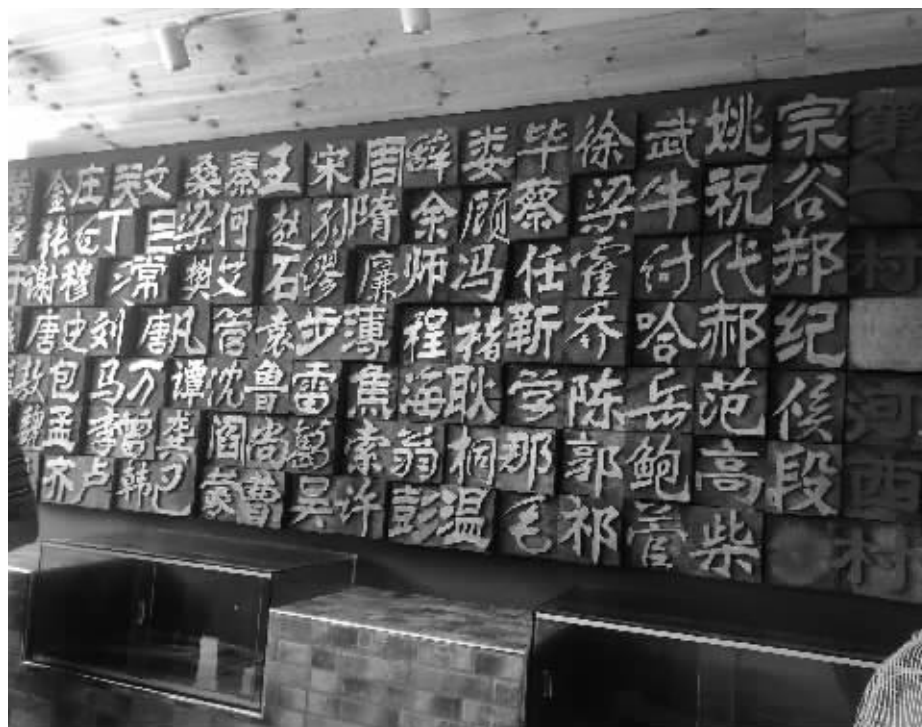 黄 金 庄 吴 文 桑 秦 王 宋 周 薛 娄 毕 徐 武 姚 宗 第
张 丁 吕 梁 何 赵 孙 隋 余 顾 蔡 梁 牛 祝 谷 一
谢 穆 常 樊 艾 石 缪 廉 师 冯 任 霍 付 代 郑 村
唐 史 刘 唐 凡 管 袁 步 薄 程 褚 靳 乔 哈 郝 纪
敖 包 马 万 谭 沈 鲁 雷 焦 海 耿 学 陈 岳 范 侯 河
魏 孟 李 曾 龚 阎 尚 葛 索 翁 桐 那 郭 鲍 高 段 西
齐 卢 韩 蒙 曹 吴 许 彭 温 毛 祁 菅 柴 村